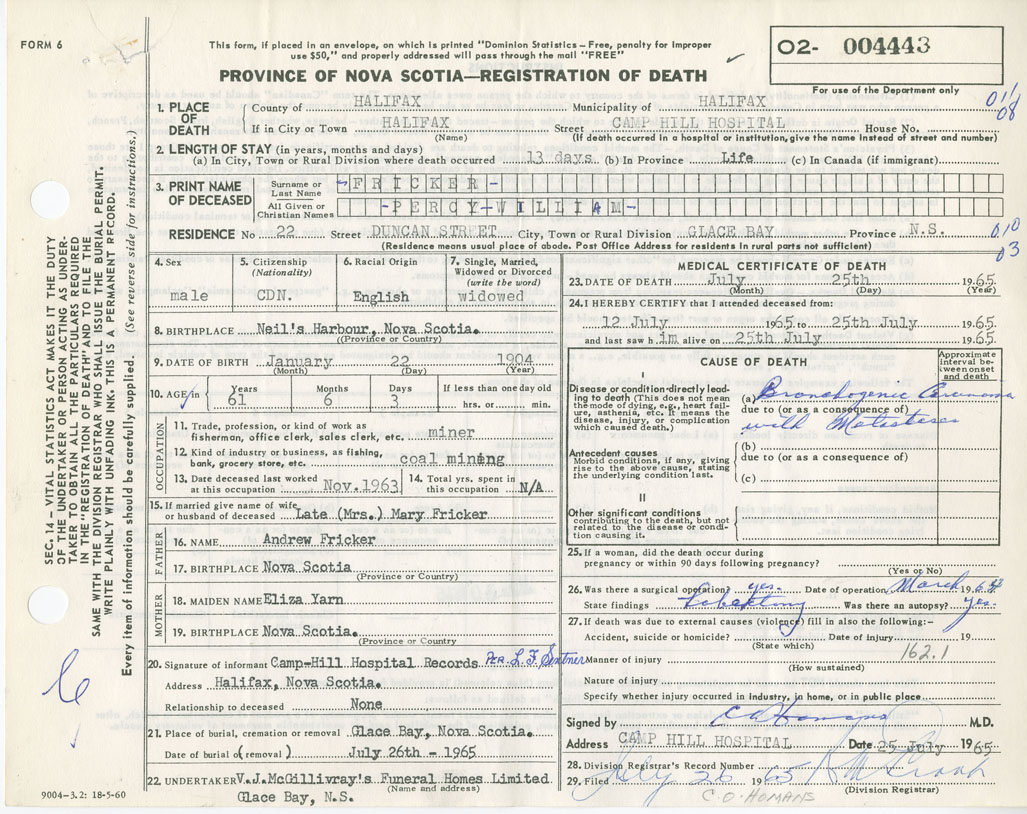 FORM 6
This form, if placed in an envelope, on which is printed "Dominion Statistics – Free, penalty for improper
use $50," and properly addressed will pass through the mail "FREE"
PROVINCE OF NOVA SCOTIA—REGISTRATION OF DEATH
O2- 004443
For use of the Department only
011/08
1. PLACE OF DEATH
County of HALIFAX Municipality of HALIFAX
If in City or Town HALIFAX Street CAMP HILL HOSPITAL House No.
(Name) (If death occurred in a hospital or institution, give the name instead of street and number)
2. LENGTH OF STAY (in years, months and days)
(a) In City, Town or Rural Division where death occurred 13 days (b) In Province Life (c) In Canada (if immigrant)
3. PRINT NAME OF DECEASED
Surname or Last Name -FRICKER-
All Given or Christian Names -PERCY-WILLIAM-
RESIDENCE No 22 Street DUNCAN STREET City, Town or Rural Division GLACE BAY Province N.S.
(Residence means usual place of abode. Post Office Address for residents in rural parts not sufficient)
010
03
4. Sex
male
5. Citizenship
(Nationality)
CDN.
6. Racial Origin
English
7. Single, Married,
Widowed or Divorced
(write the word)
widowed
8. BIRTHPLACE Neil's Harbour, Nova Scotia.
(Province or Country)
9. DATE OF BIRTH January 22 1904
(Month) (Day) (Year)
10. AGE in
Years Months Days If less than one day old
61 6 3 hrs. or min.
OCCUPATION
11. Trade, profession, or kind of work as
fisherman, office clerk, sales clerk, etc. miner
12. Kind of industry or business, as fishing,
bank, grocery store, etc. coal mining
13. Date deceased last worked
at this occupation Nov.1963
14. Total yrs. spent in
this occupation N/A
15. If married give name of wife
or husband of deceased Late (Mrs.) Mary Fricker
FATHER
16. NAME Andrew Fricker
17. BIRTHPLACE Nova Scotia
(Province or Country)
MOTHER
18. MAIDEN NAME Eliza Yarn
19. BIRTHPLACE Nova Scotia.
(Province or Country)
20. Signature of informant Camp-Hill Hospital Records Per. L F
Address Halifax, Nova Scotia.
Relationship to deceased None
21. Place of burial, cremation or removal Glace Bay, Nova Scotia.
Date of burial o(removal) July 26th - 1965
22. UNDERTAKER V.J.McGillivray's Funeral Homes Limited
(Name and address)
Glace Bay, N.S.
9004-3.2: 18-5-60
MEDICAL CERTIFICATE OF DEATH
23. DATE OF DEATH July 25th 1965
(Month) (Day) (Year)
24. I HEREBY CERTIFY that I attended deceased from:
12 July 1965 to 25th July 1965.
and last saw him alive on 25th July 1965
CAUSE OF DEATH
Approximate
interval be-
tween onset
and death
I
Disease or condition directly lead-
ing to death (This does not mean
the mode of dying, e.g., heart fail-
ure, asthenia, etc. It means the
disease, injury, or complication
which caused death).
(a) Bronchogenic Carcinoma
due to (or as a consequence of)
with Metastases
Antecedent causes
Morbid conditions, if any, giving
rise to the above cause, stating
the underlying condition last.
(b)
due to (or as a consequence of)
(c)
II
Other significant conditions
contributing to the death, but not
related to the disease or condi-
tion causing it.
25. If a woman, did the death occur during
pregnancy or within 90 days following pregnancy?
(Yes or No)
26. Was there a surgical operation? yes. Date of operation March 1964
State findings Lobectomy Was there an autopsy? yes.
27. If death was due to external causes (violence) fill in also the following:–
Accident, suicide or homicide? Date of injury 19
(State which)
162.1
Manner of injury
(How sustained)
Nature of injury
Specify whether injury occurred in industry, in home, or in public place
Signed by C O Homans M.D.
Address CAMP HILL HOSPITAL Date 25 July 1965
28. Division Registrar's Record Number
29. Filed July 26 1965
(Division Registrar)
C.O. HOMANS
SEC. 14 – VITAL STATISTICS ACT MAKES IT THE DUTY
OF THE UNDERTAKER OR PERSON ACTING AS UNDER-
TAKER TO OBTAIN ALL THE PARTICULARS REQUIRED
IN THE "REGISTRATION OF DEATH" AND TO FILE THE
SAME WITH THE DIVISION REGISTRAR WHO SHALL ISSUE THE BURIAL PERMIT.
WRITE PLAINLY WITH UNFADING INK. THIS IS A PERMANENT RECORD.
Every item of information should be carefully supplied. (See reverse side for instructions.)